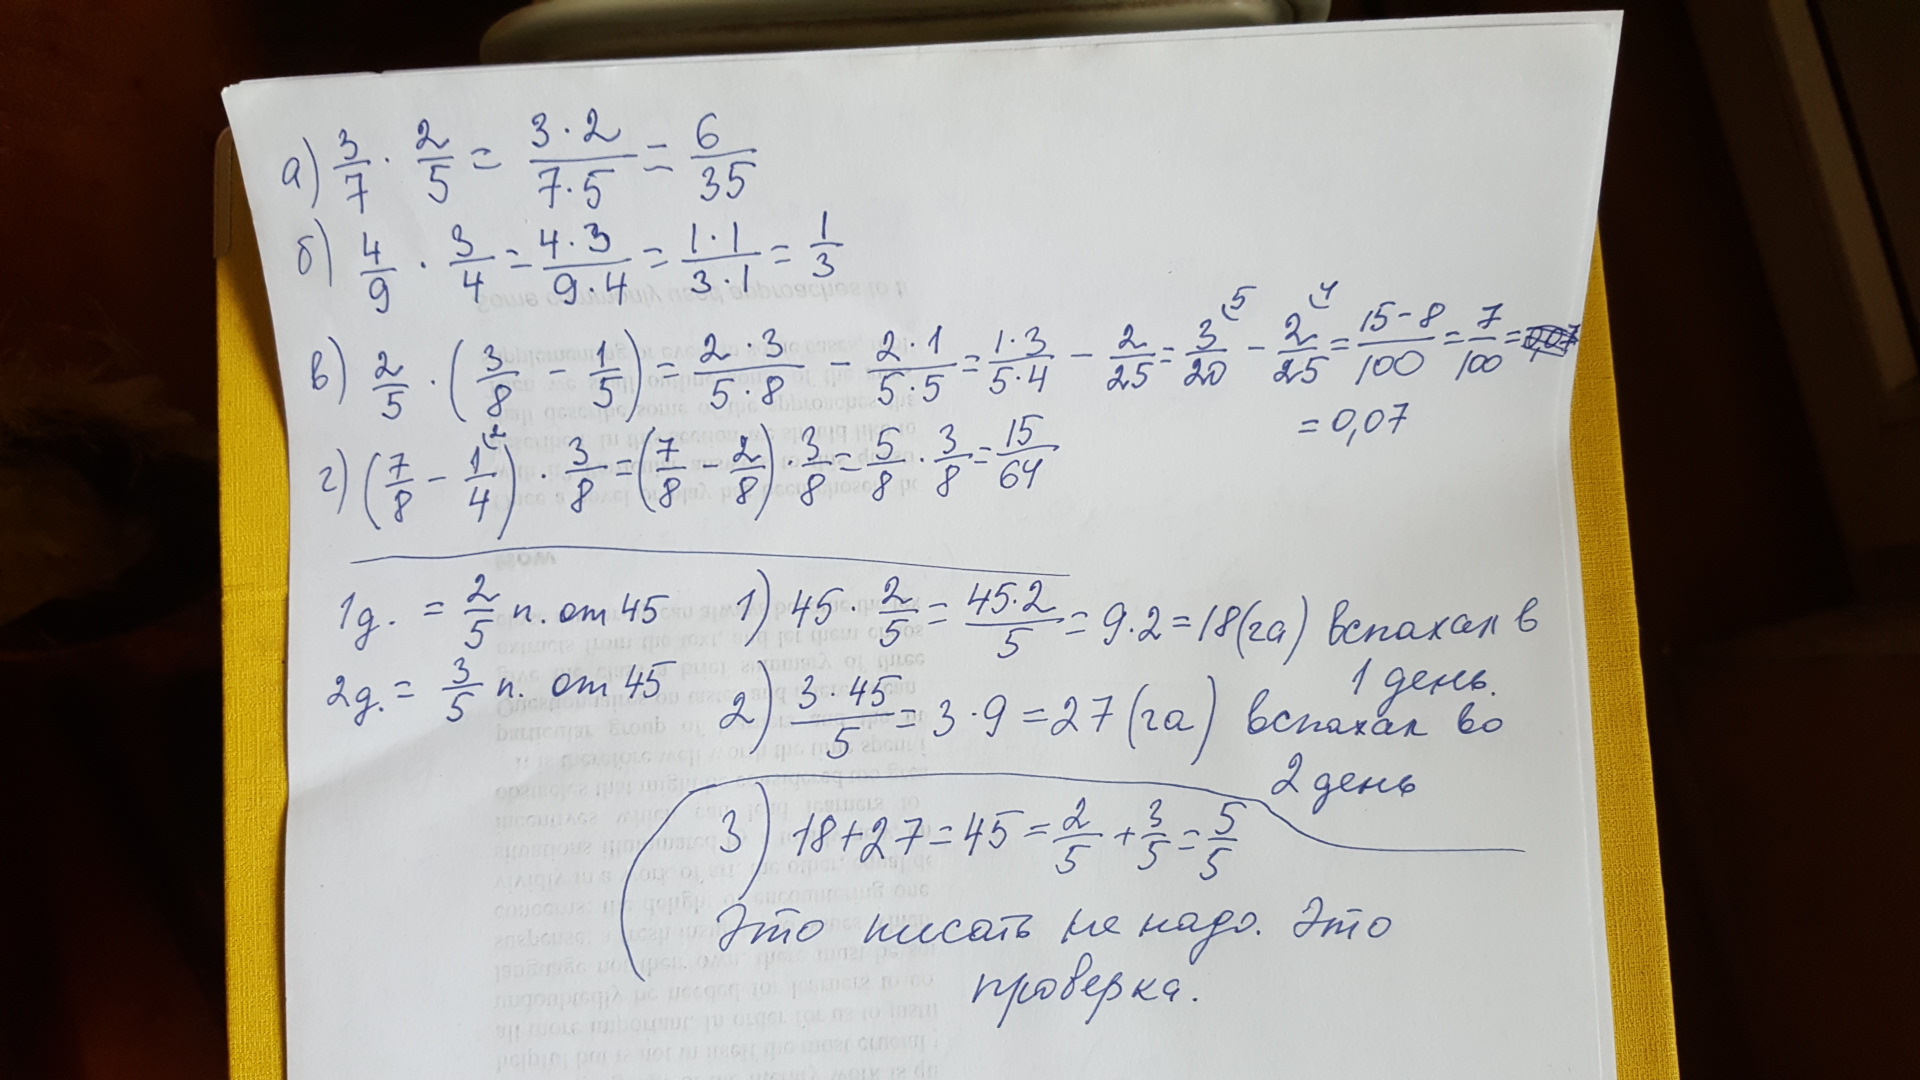 а) 3/7 · 2/5 = (3·2)/(7·5) = 6/35
б) 4/9 · 3/4 = (4·3)/(9·4) = (1·1)/(3·1) = 1/3
в) 2/5 · (3/8 − 1/5) = (2·3)/(5·8) − (2·1)/(5·5) = (1·3)/(5·4) − 2/25 = 3/20 ⁵ − 2/25 ⁴ = (15−8)/100 = 7/100 =
= 0,07
г) (7/8 − 1/4 ²) · 3/8 = (7/8 − 2/8) · 3/8 = 5/8 · 3/8 = 15/64
1д. = 2/5 п. от 45
2д. = 3/5 п. от 45
1) 45 · 2/5 = (45·2)/5 = 9·2 = 18 (га) вспахал в
1 день.
2) (3·45)/5 = 3·9 = 27 (га) вспахал во
2 день
3) 18+27 = 45 = 2/5 + 3/5 = 5/5
Это писать не надо. Это
проверка.